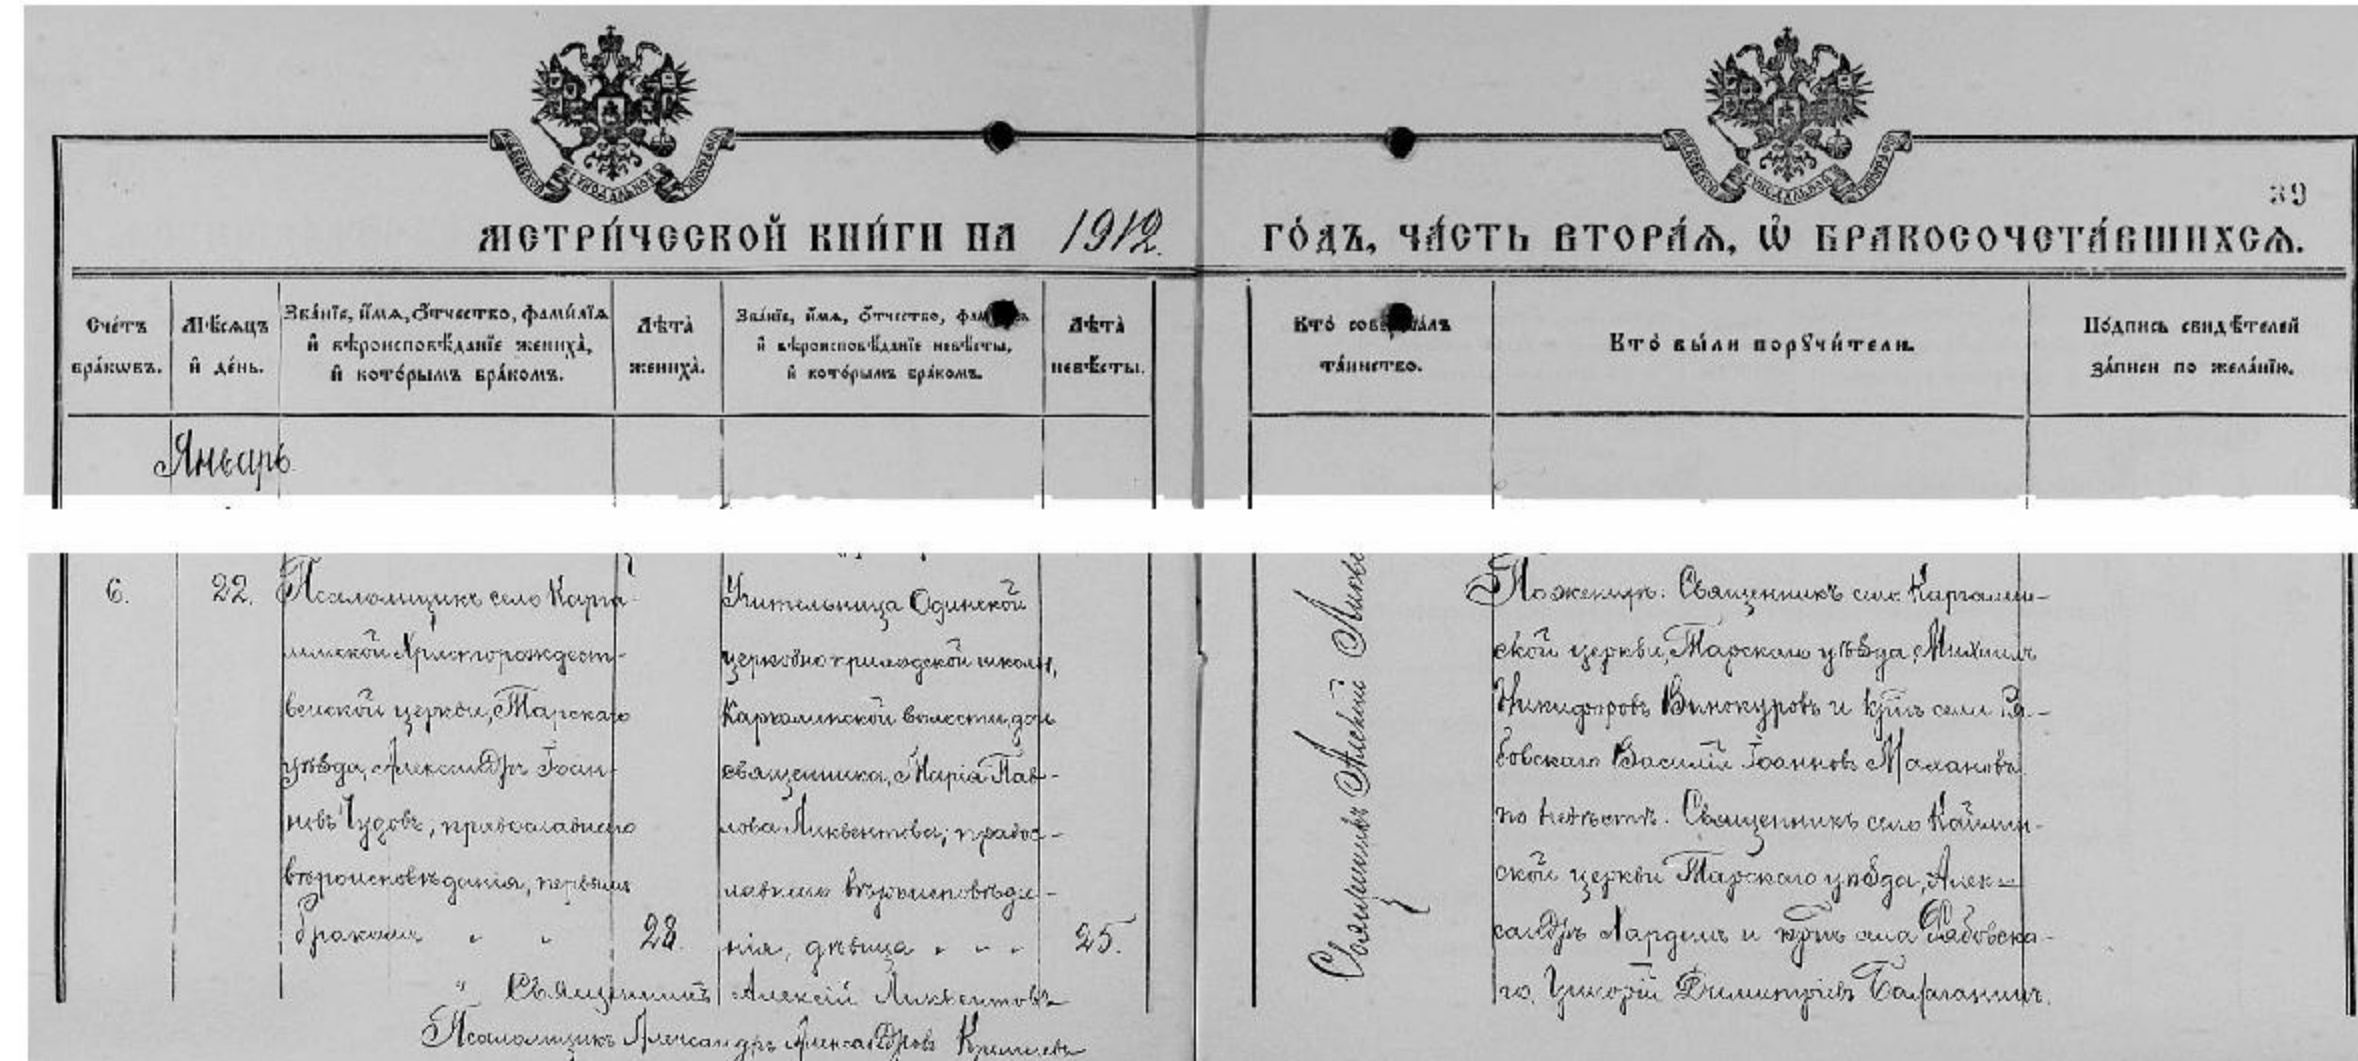 39
МЕТРИ́ЧЕСКОЙ КНИ́ГИ НА 1912. ГО́ДЪ, ЧА́СТЬ ВТОРА́Ѧ, Ѡ҆ БРАКОСОЧЕТА́ВШИХСѦ.
Сче́тъ
бра́кѡвъ.
Мѣ́сѧцъ
и҆ де́нь.
Зва́нїе, и҆́мѧ, ѻ҆́тчество, фами́лїѧ
и҆ вѣроисповѣ́данїе жениха̀,
и҆ кото́рымъ бра́комъ.
Лѣта̀
жениха̀.
Зва́нїе, и҆́мѧ, ѻ҆́тчество,
и҆ вѣроисповѣ́данїе невѣ́сты,
и҆ кото́рымъ бра́комъ.
Лѣта̀
невѣ́сты.
Кто̀
та́инство.
Кто̀ бы́ли порꙋчи́тели.
По́дпись свидѣ́телей
за́писи по жела́нїю.
Январь
6.
22.
Псаломщикъ села Карга-
линской Христорождест-
венской церкви, Тарскаго
уѣзда, Александръ Іоан-
новъ Чудовъ, православнаго
вѣроисповѣданія, первымъ
бракомъ " "
28.
Учительница Одинской
церковно приходской школы,
Каргалинской волости, дочь
священника, Марія Пав-
лова Ликвентова; правос-
лавнаго вѣроисповѣда-
нія, дѣвица " " "
25.
Священникъ Алексій
По женихѣ: Священникъ села Каргалин-
ской церкви, Тарскаго уѣзда, Михаилъ
Никифоровъ Винокуровъ и кр-нъ села Ря-
бовскаго Василій Іоанновъ Малановъ
по невѣстѣ: Священникъ села Каилин-
ской церкви Тарскаго уѣзда, Алек-
сандръ Лардемъ и кр-нъ села Рябовска-
го, Григорій Димитріевъ Балаганинъ.
" Священникъ Алексій Ликвентовъ
Псаломщикъ Александръ Александровъ